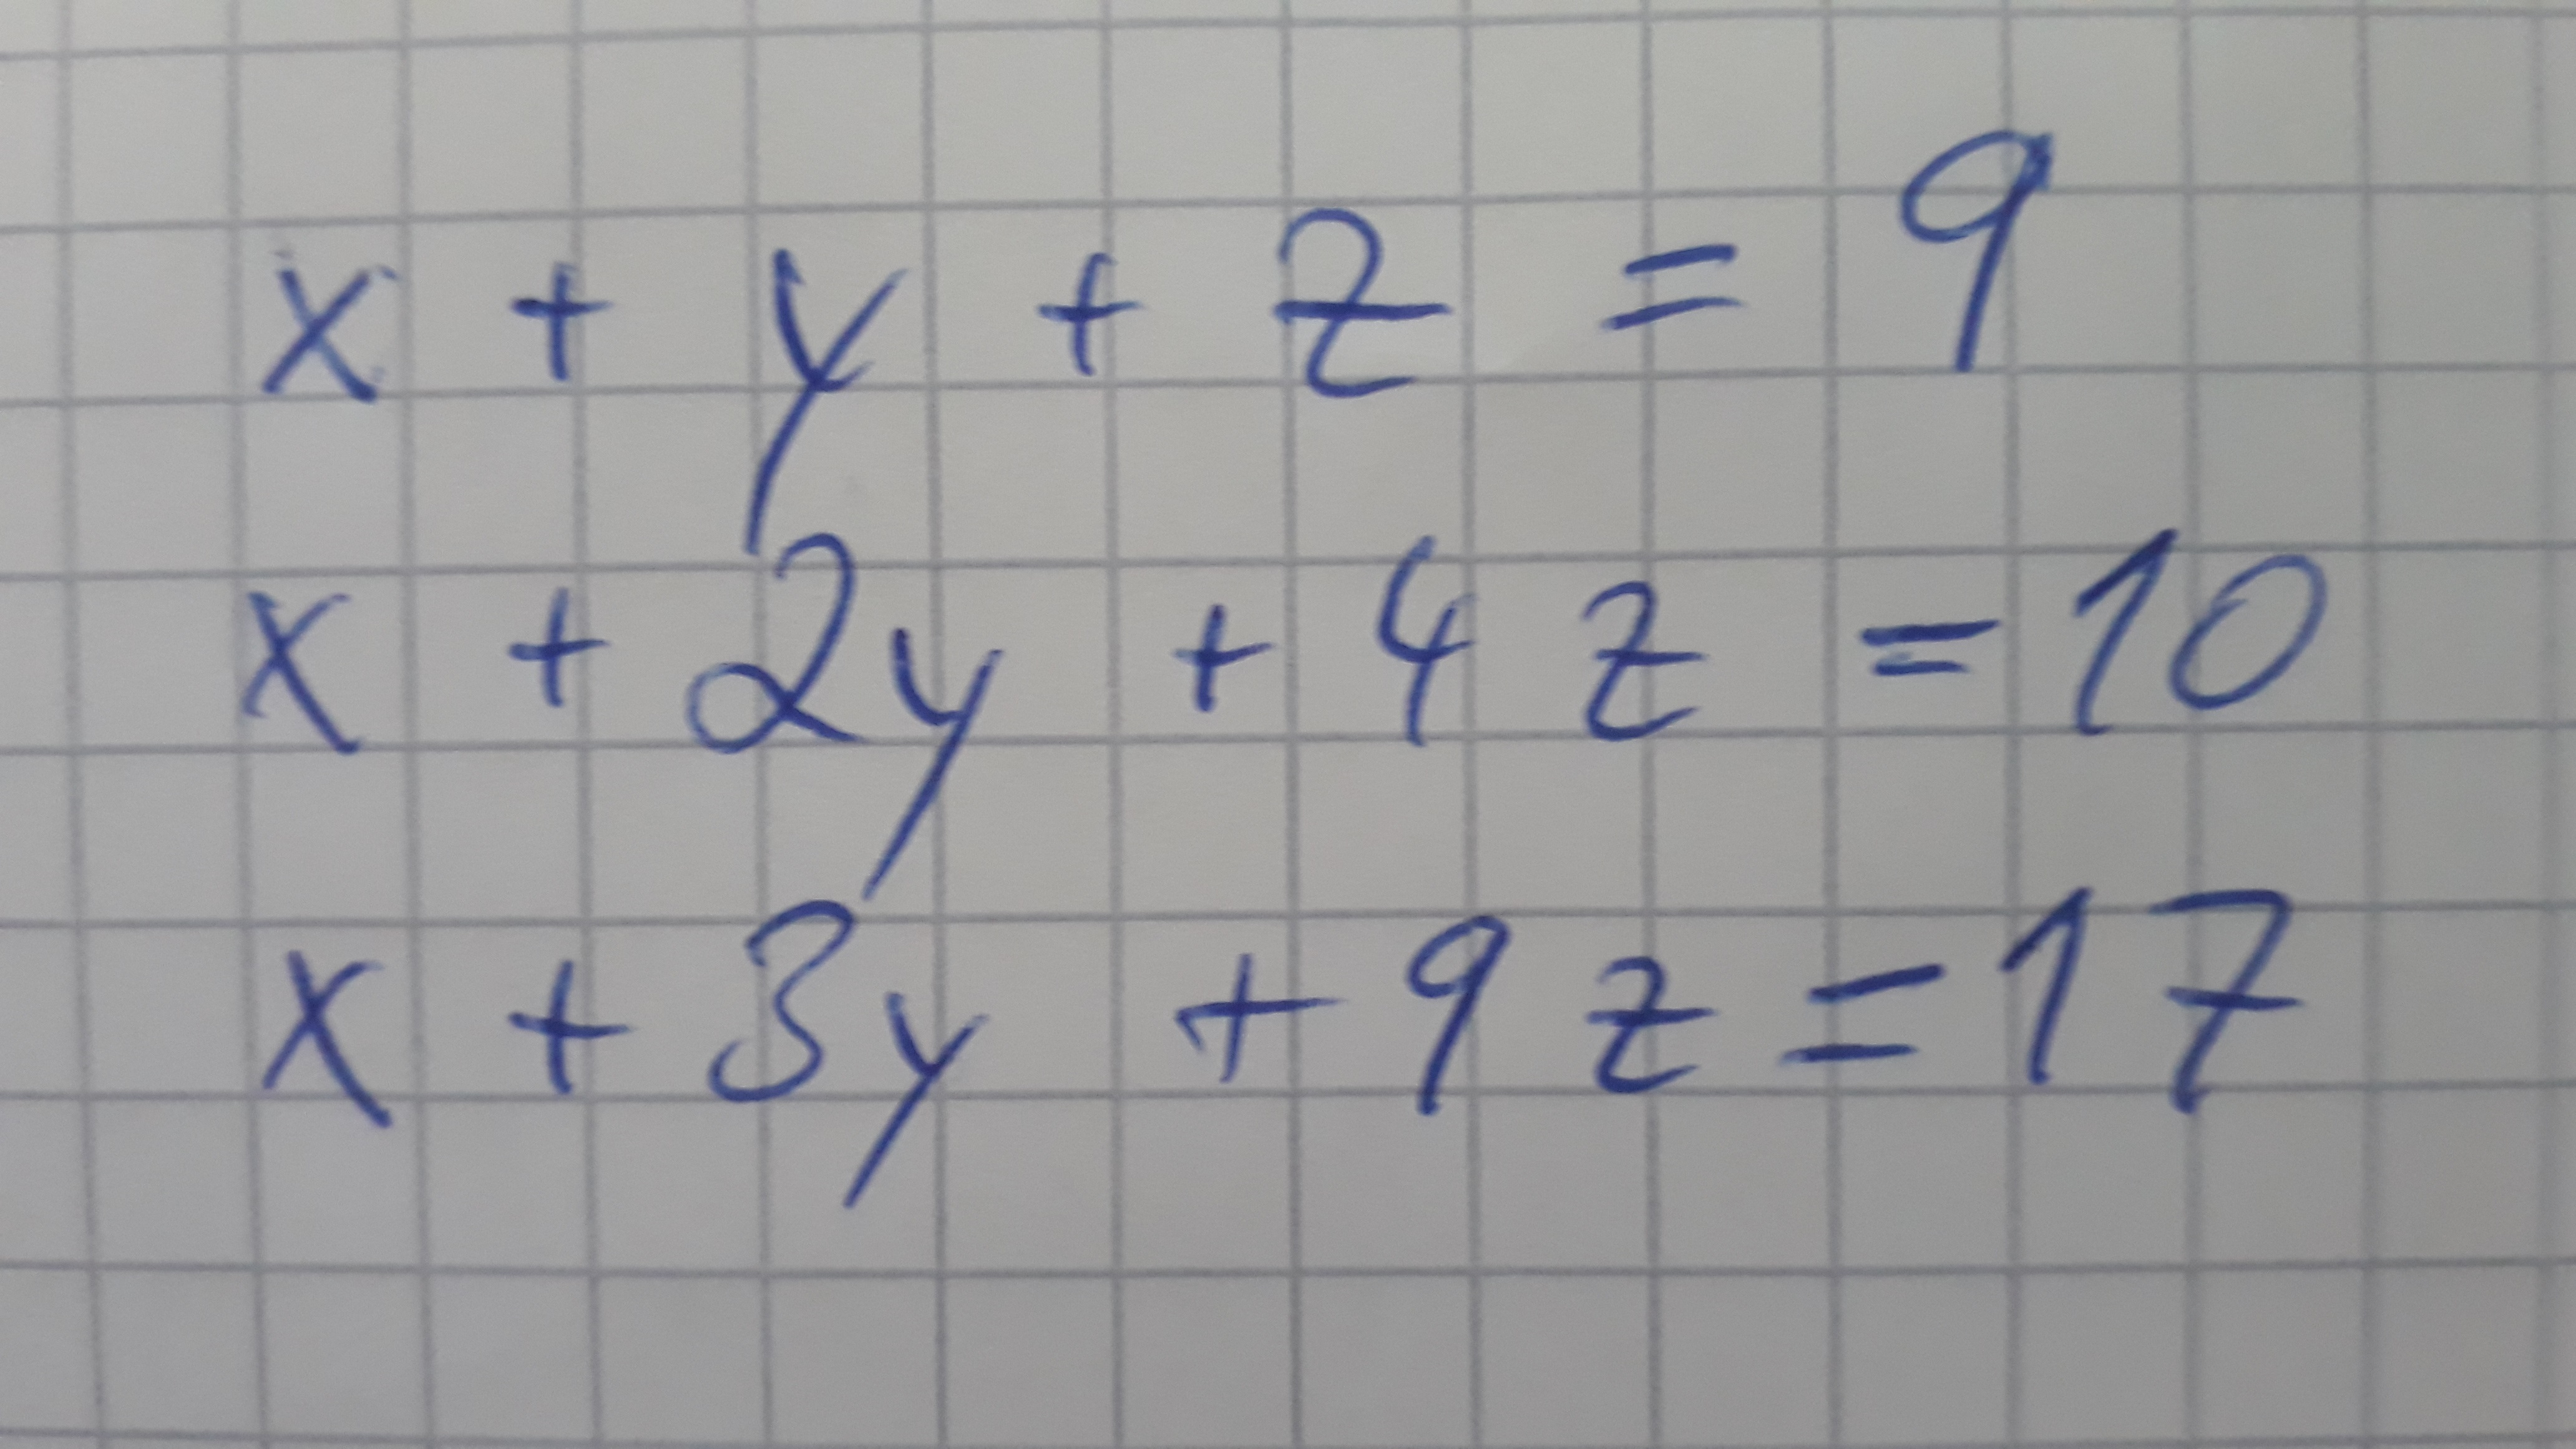 x + y + z = 9
x + 2y + 4z = 10
x + 3y + 9z = 17